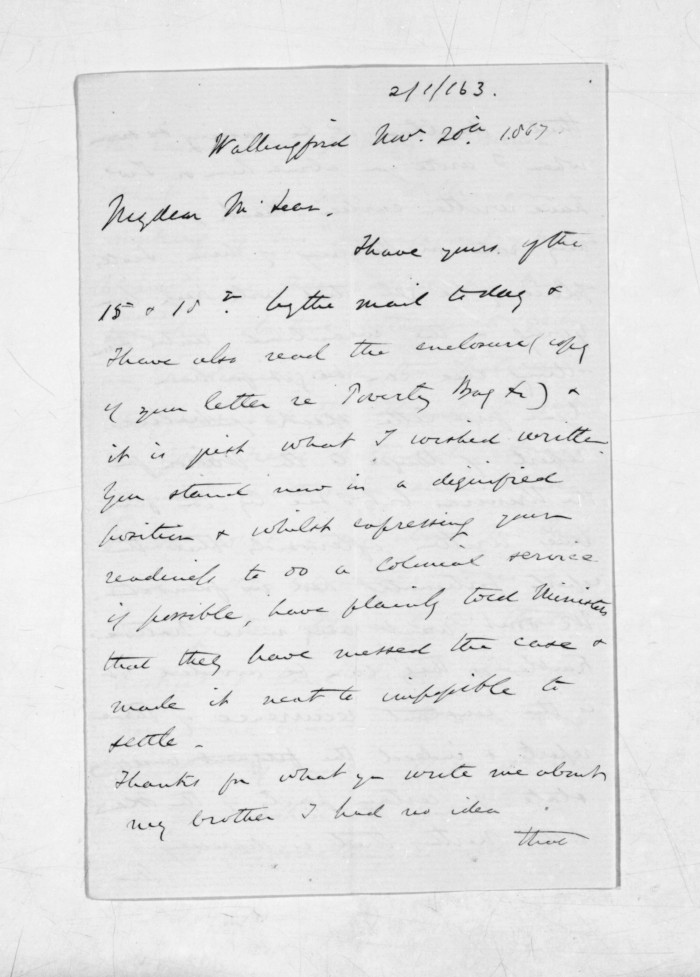 2/1/163.
Wallingford Novr. 20th. 1867
My dear McLean.
I have yours of the
15 & 18th by the mail to day &
I have also read the enclosure (copy
of your letter re Poverty Bay &c) &
it is just what I wished written
You stand now in a dignified
position & whilst expressing your
readiness to do a colonial service
if possible, have plainly told Ministers
that they have messed the case &
made it next to impossible to
settle -
Thanks for what you write me about
my brother I had no idea
that